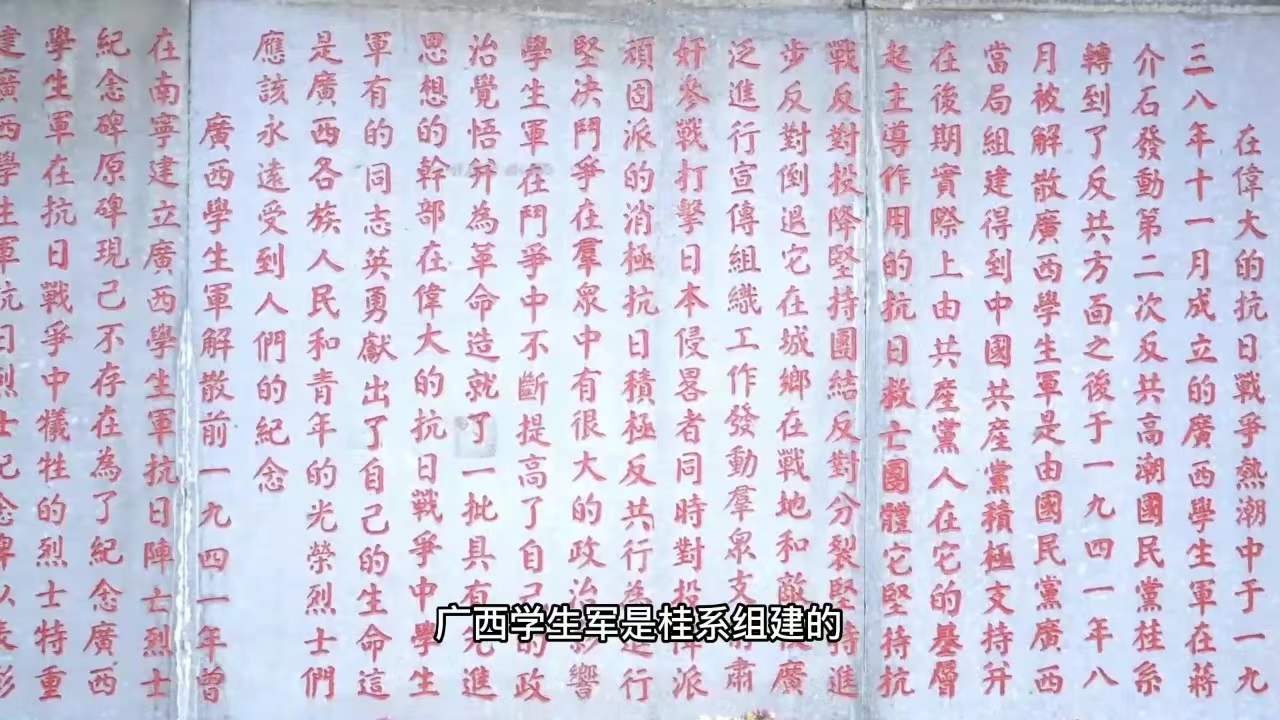 在偉大的抗日戰爭熱潮中于一九
三八年十一月成立的廣西學生軍在蔣
介石發動第二次反共高潮國民黨桂系
轉到了反共方面之後于一九四一年八
月被解散廣西學生軍是由國民黨廣西
當局組建得到中國共產黨積極支持幷
在後期實際上由共産黨人在它的基層
起主導作用的抗日救亡團體它堅持抗
戰反對投降堅持團結反對分裂堅持進
步反對倒退它在城鄉在戰地和敵後廣
泛進行宣傳組織工作發動羣衆支肅
奸參戰打擊日本侵畧者同時對投降派
頑固派的消極抗日積極反共行為進行
堅決鬥爭在羣眾中有很大的政治影響
學生軍在鬥爭中不斷提高了自己的政
治覺悟幷為革命造就了一批具有先進
思想的幹部在偉大的抗日戰爭中學生
軍有的同志英勇獻出了自己的生命這
是廣西各族人民和青年的光榮烈士們
應該永遠受到人們的紀念
廣西學生軍解散前一九四一年曾
在南寧建立廣西學生軍抗日陣亡烈士
紀念碑原碑現已不存在為了紀念廣西
學生軍在抗日戰爭中犧牲的烈士特重
建廣西學生軍抗日烈士紀念碑以表彰
广西学生军是桂系组建的